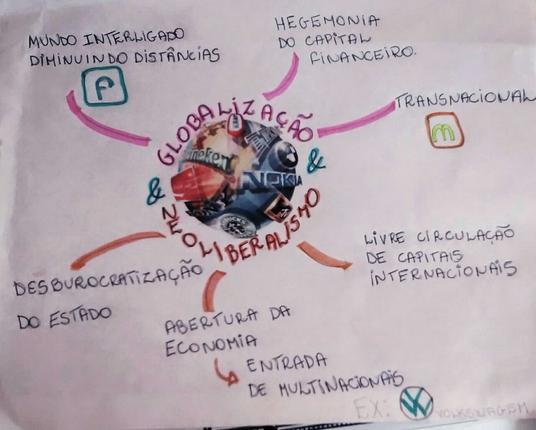 MUNDO INTERLIGADO
DIMINUINDO DISTÂNCIAS
f
HEGEMONIA
DO CAPITAL
FINANCEIRO.
TRANSNACIONAL
m
GLOBALIZAÇÃO
&
&
NEOLIBERALISMO
Heineken
NOKIA
DESBUROCRATIZAÇÃO
DO ESTADO
ABERTURA DA
ECONOMIA
ENTRADA
DE MULTINACIONAIS
EX: VW VOLKSWAGEM
LIVRE CIRCULAÇÃO
DE CAPITAIS
INTERNACIONAIS